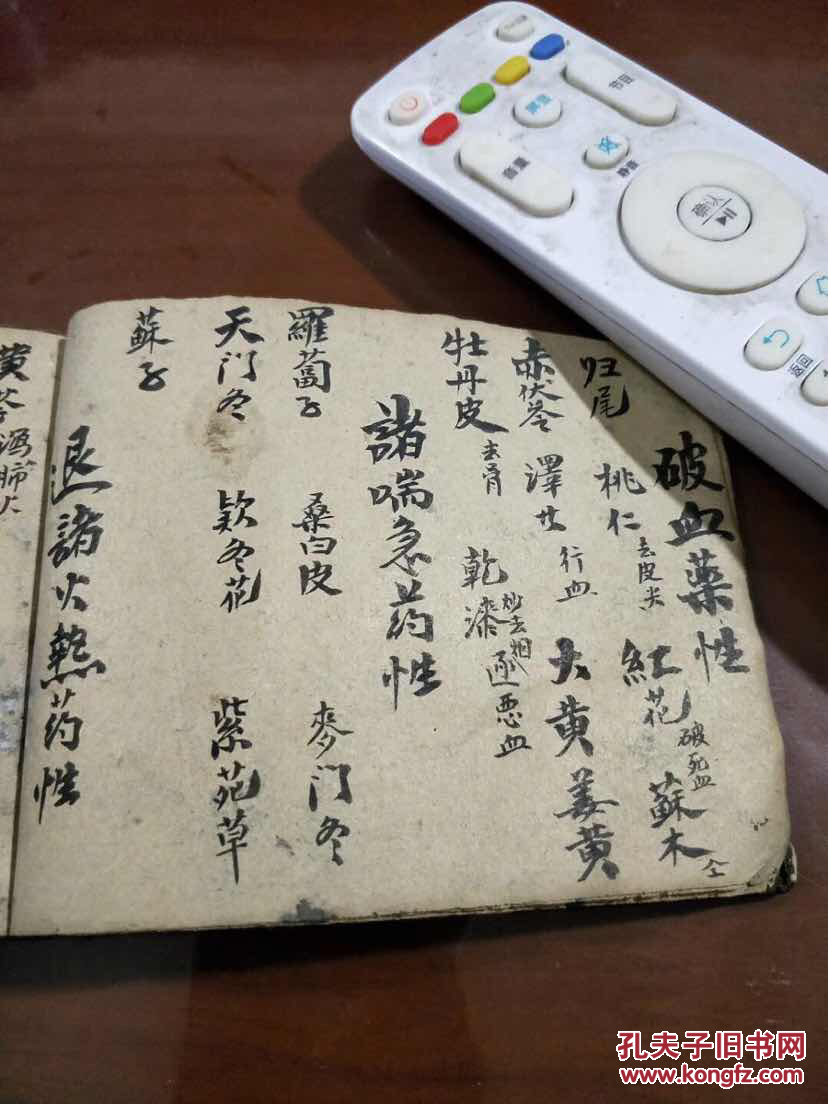 破血薬性
归尾 桃仁去皮尖 紅花破死血 蘇木仝
赤茯苓 澤艾行血 大黄 姜黄
牡丹皮去骨 乾漆炒去烟逐恶血
諸喘急药性
羅蔔子 桑白皮 麥门冬
天门冬 欵冬花 紫苑草
蘇子
退諸火熱药性
黄芩瀉肺火
节目
音量
静音
确认
返回
孔夫子旧书网
www.kongfz.com